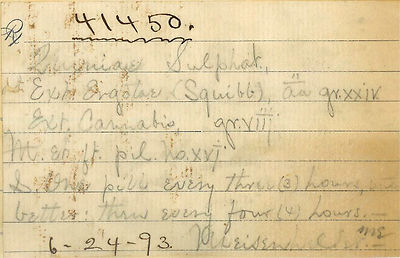 ℞ 41450.
Quiniae Sulphat.,
Ext. Ergotae (Squibb), āā gr.xxiv
Ext. Cannabis, gr.viij
M. et ft. pil. No. xvj.
S. One pill every three (3) hours,
better: then every four (4) hours.—
6-24-93. Meisenhelder.